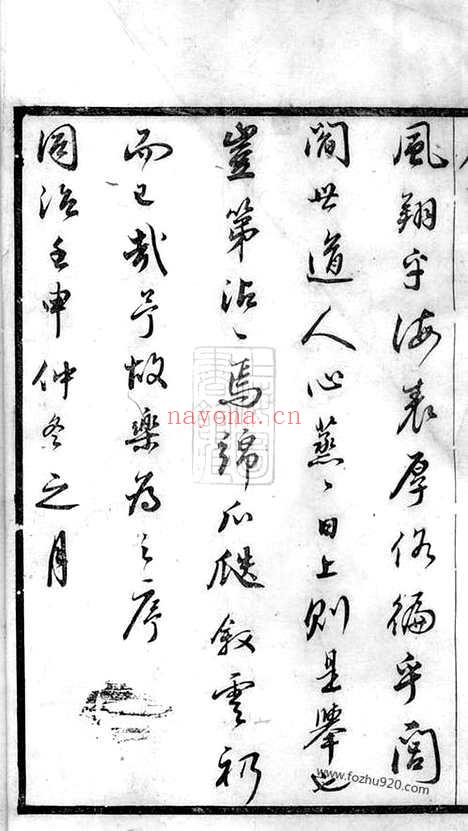 風翔乎海表厚俗徧乎閭
閻世道人心蒸〻日上則是舉也
豈第沾〻焉綿瓜瓞叙雲礽
而已哉予故樂為之序
同治壬申仲冬之月
nayona.cn
www.fozhu920.com